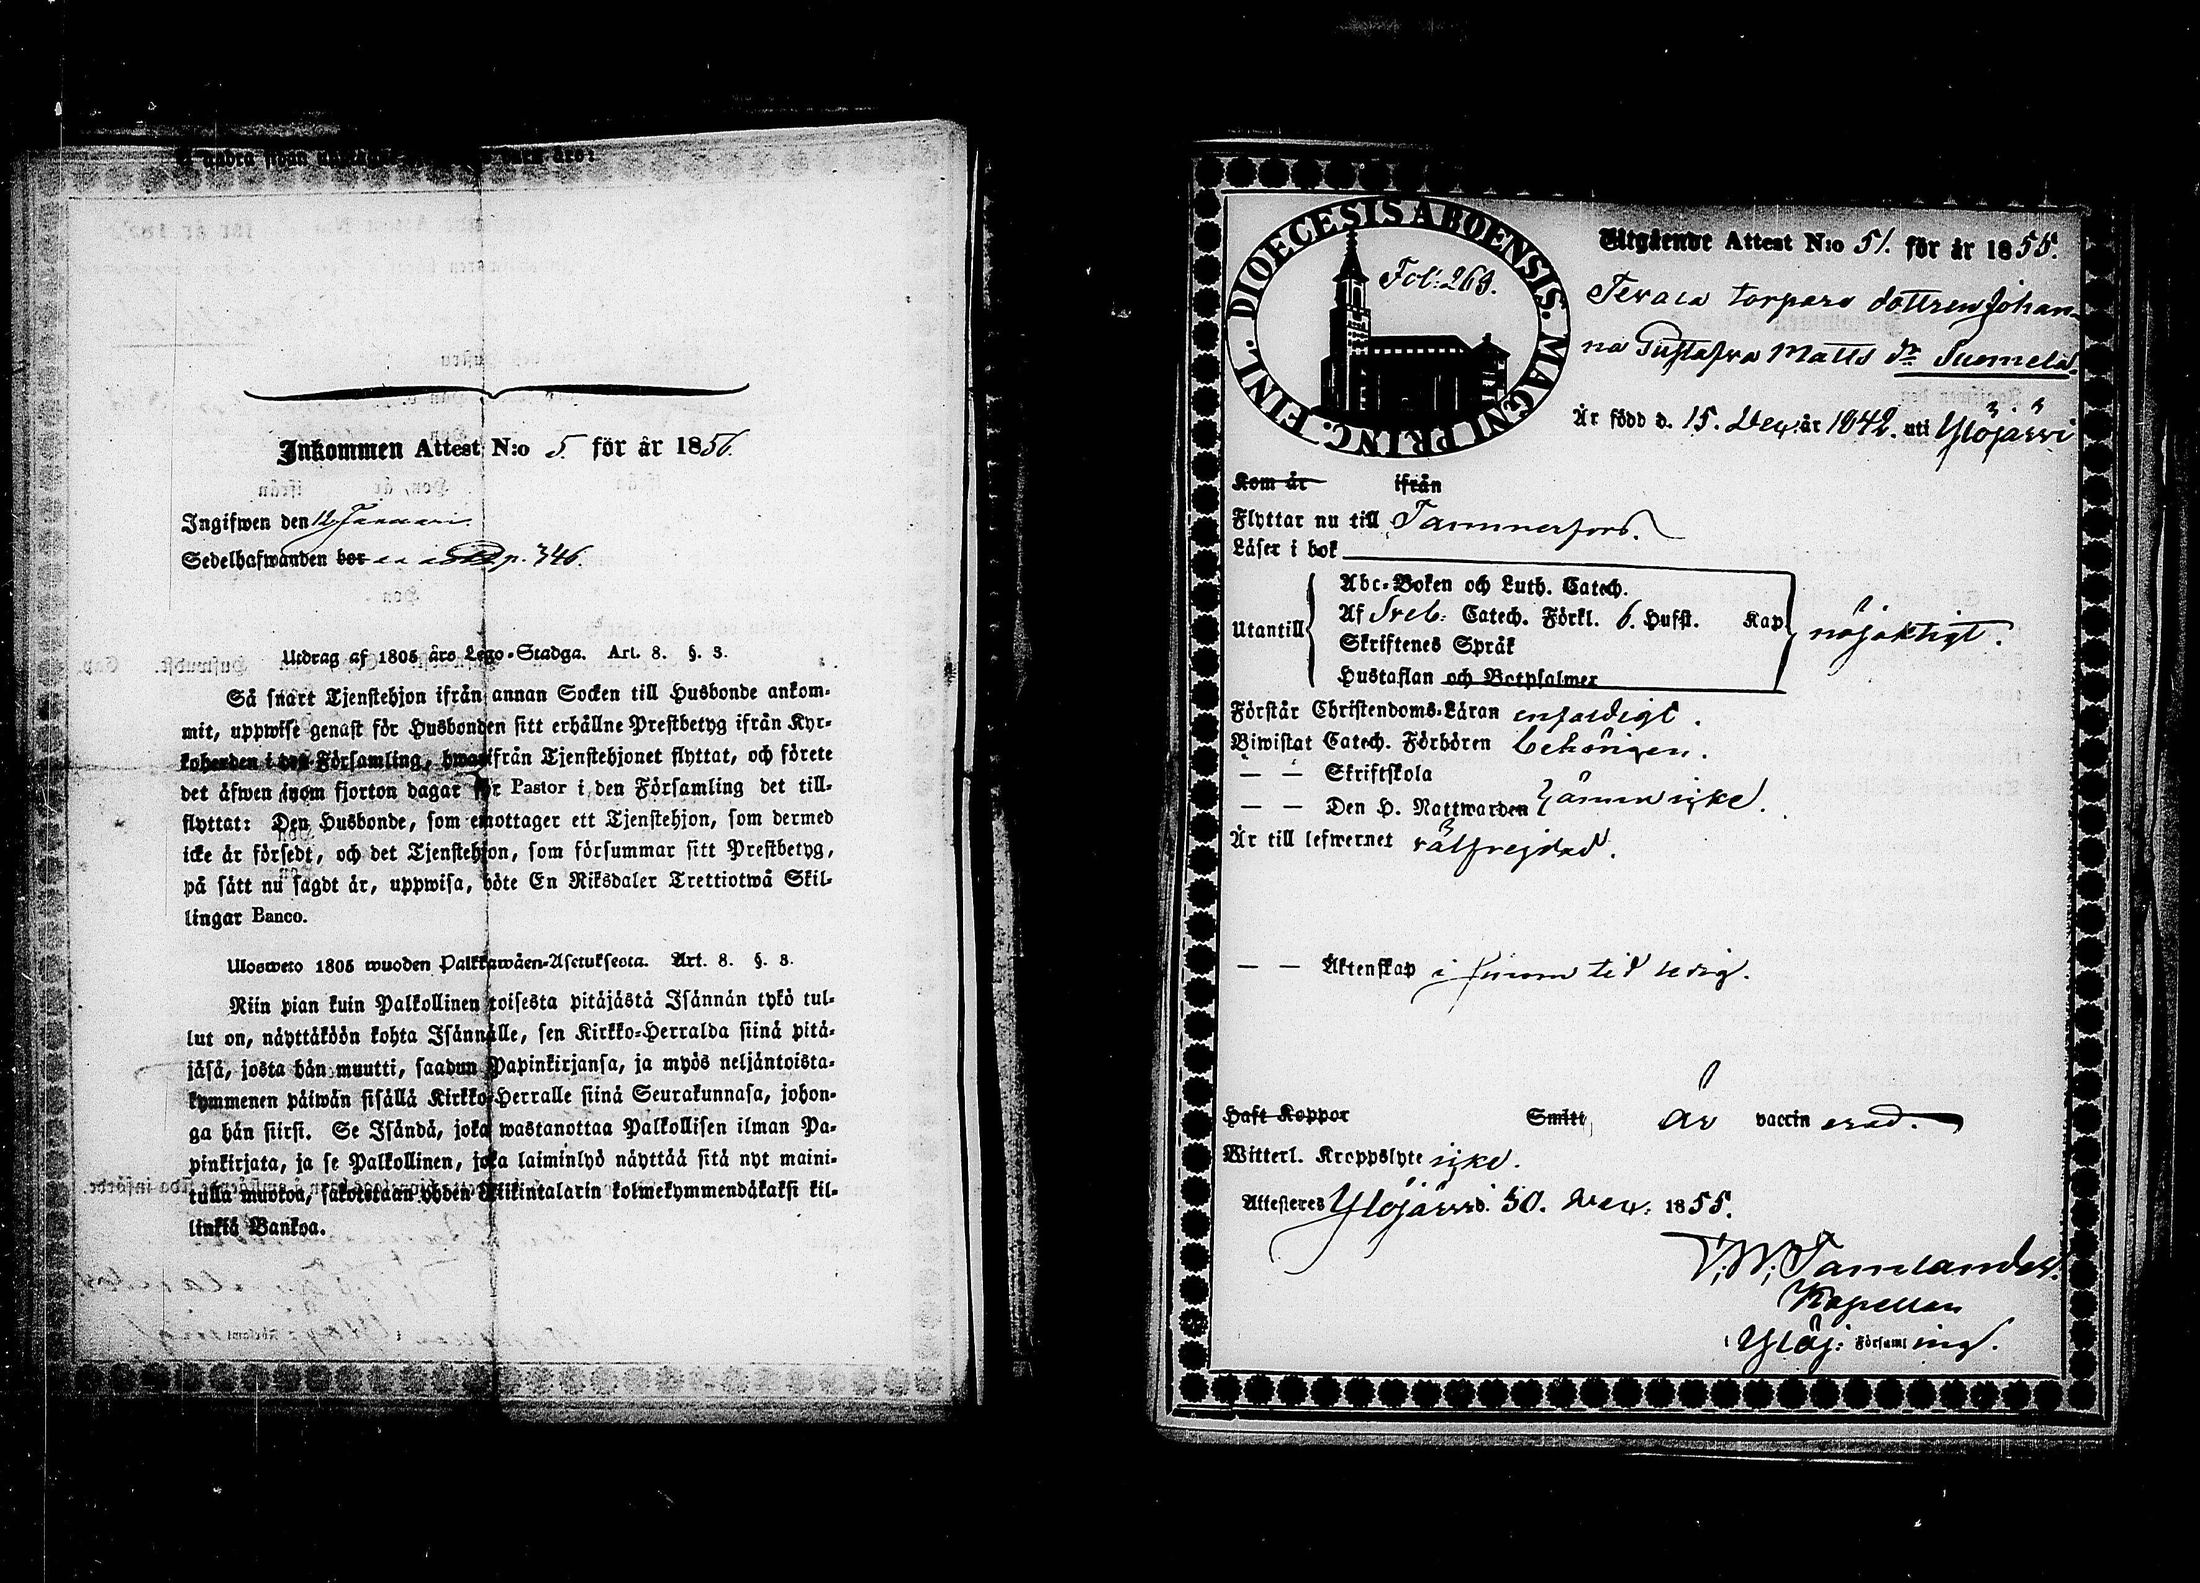 Inkommen Attest N:o 5. för år 1856.
Ingifwen den 12 Januari
Sedelhafwanden bor p. 346.
Utdrag af 1805 års Lego-Stadga. Art. 8. §. 3.
Så snart Tjenstehjon ifrån annan Socken till Husbonde ankom-
mit, uppwise genast för Husbonden sitt erhållne Prestbetyg ifrån Kyr-
koherden i den Församling, hwarifrån Tjenstehjonet flyttat, och förete
det äfwen inom fjorton dagar för Pastor i den Församling det till-
flyttat: Den Husbonde, som emottager ett Tjenstehjon, som dermed
icke är försedt, och det Tjenstehjon, som försummar sitt Prestbetyg,
på sätt nu sagdt är, uppwisa, böte En Riksdaler Trettiotwå Skil-
lingar Banco.
Ulosweto 1805 wuoden Palkkawäen-Asetuksesta. Art. 8. §. 3.
Niin pian kuin Palkollinen toisesta pitäjästä Isännän tykö tul-
lut on, näyttäköön kohta Isännälle, sen Kirkko-Herralda siinä pitä-
jäsä, josta hän muutti, saadun Papinkirjansa, ja myös neljäntoista-
kymmenen päiwän sisällä Kirkko-Herralle siinä Seurakunnasa, johon-
ga hän siirsi. Se Isändä, joka wastanottaa Palkollisen ilman Pa-
pinkirjata, ja se Palkollinen, joka laiminlyö näyttää sitä nyt maini-
tulla muotoa, sakotetaan yhden Riikintalarin kolmekymmendäkaksi kil-
linkiä Bankoa.
DIOECESIS ABOENSIS. MAGNI PRINC. FINL.
Fol: 263.
Utgående Attest N:o 51. för år 1855.
torpare dottren Johan-
na Gustafva Matts dr Suomela.
Är född d. 15. Dec. år 1842. uti Ylöjärvi
Kom år ifrån
Flyttar nu till Tammerfors.
Läser i bok
Abc-Boken och Luth. Catech.
Utantill Af Sveb: Catech. Förkl. 6. Husst. Kap. nöjaktigt.
Skriftenes Språk
Hustaflan och Botpsalmer
Förstår Christendoms-Läran enfaldigt.
Biwistat Catech. Förhören behörigen.
— — Skriftskola
— — Den H. Nattwarden ännu icke.
Är till lefwernet välfrejdad.
— — Äktenskap i sinom tid ledig.
Haft Koppor Smitt, är vaccin erad.
Witterl. Kroppslyte icke.
Attesteres Ylöjärvi d. 30. Dec. 1855.
Kapellan
i Ylöj: Församl ing.